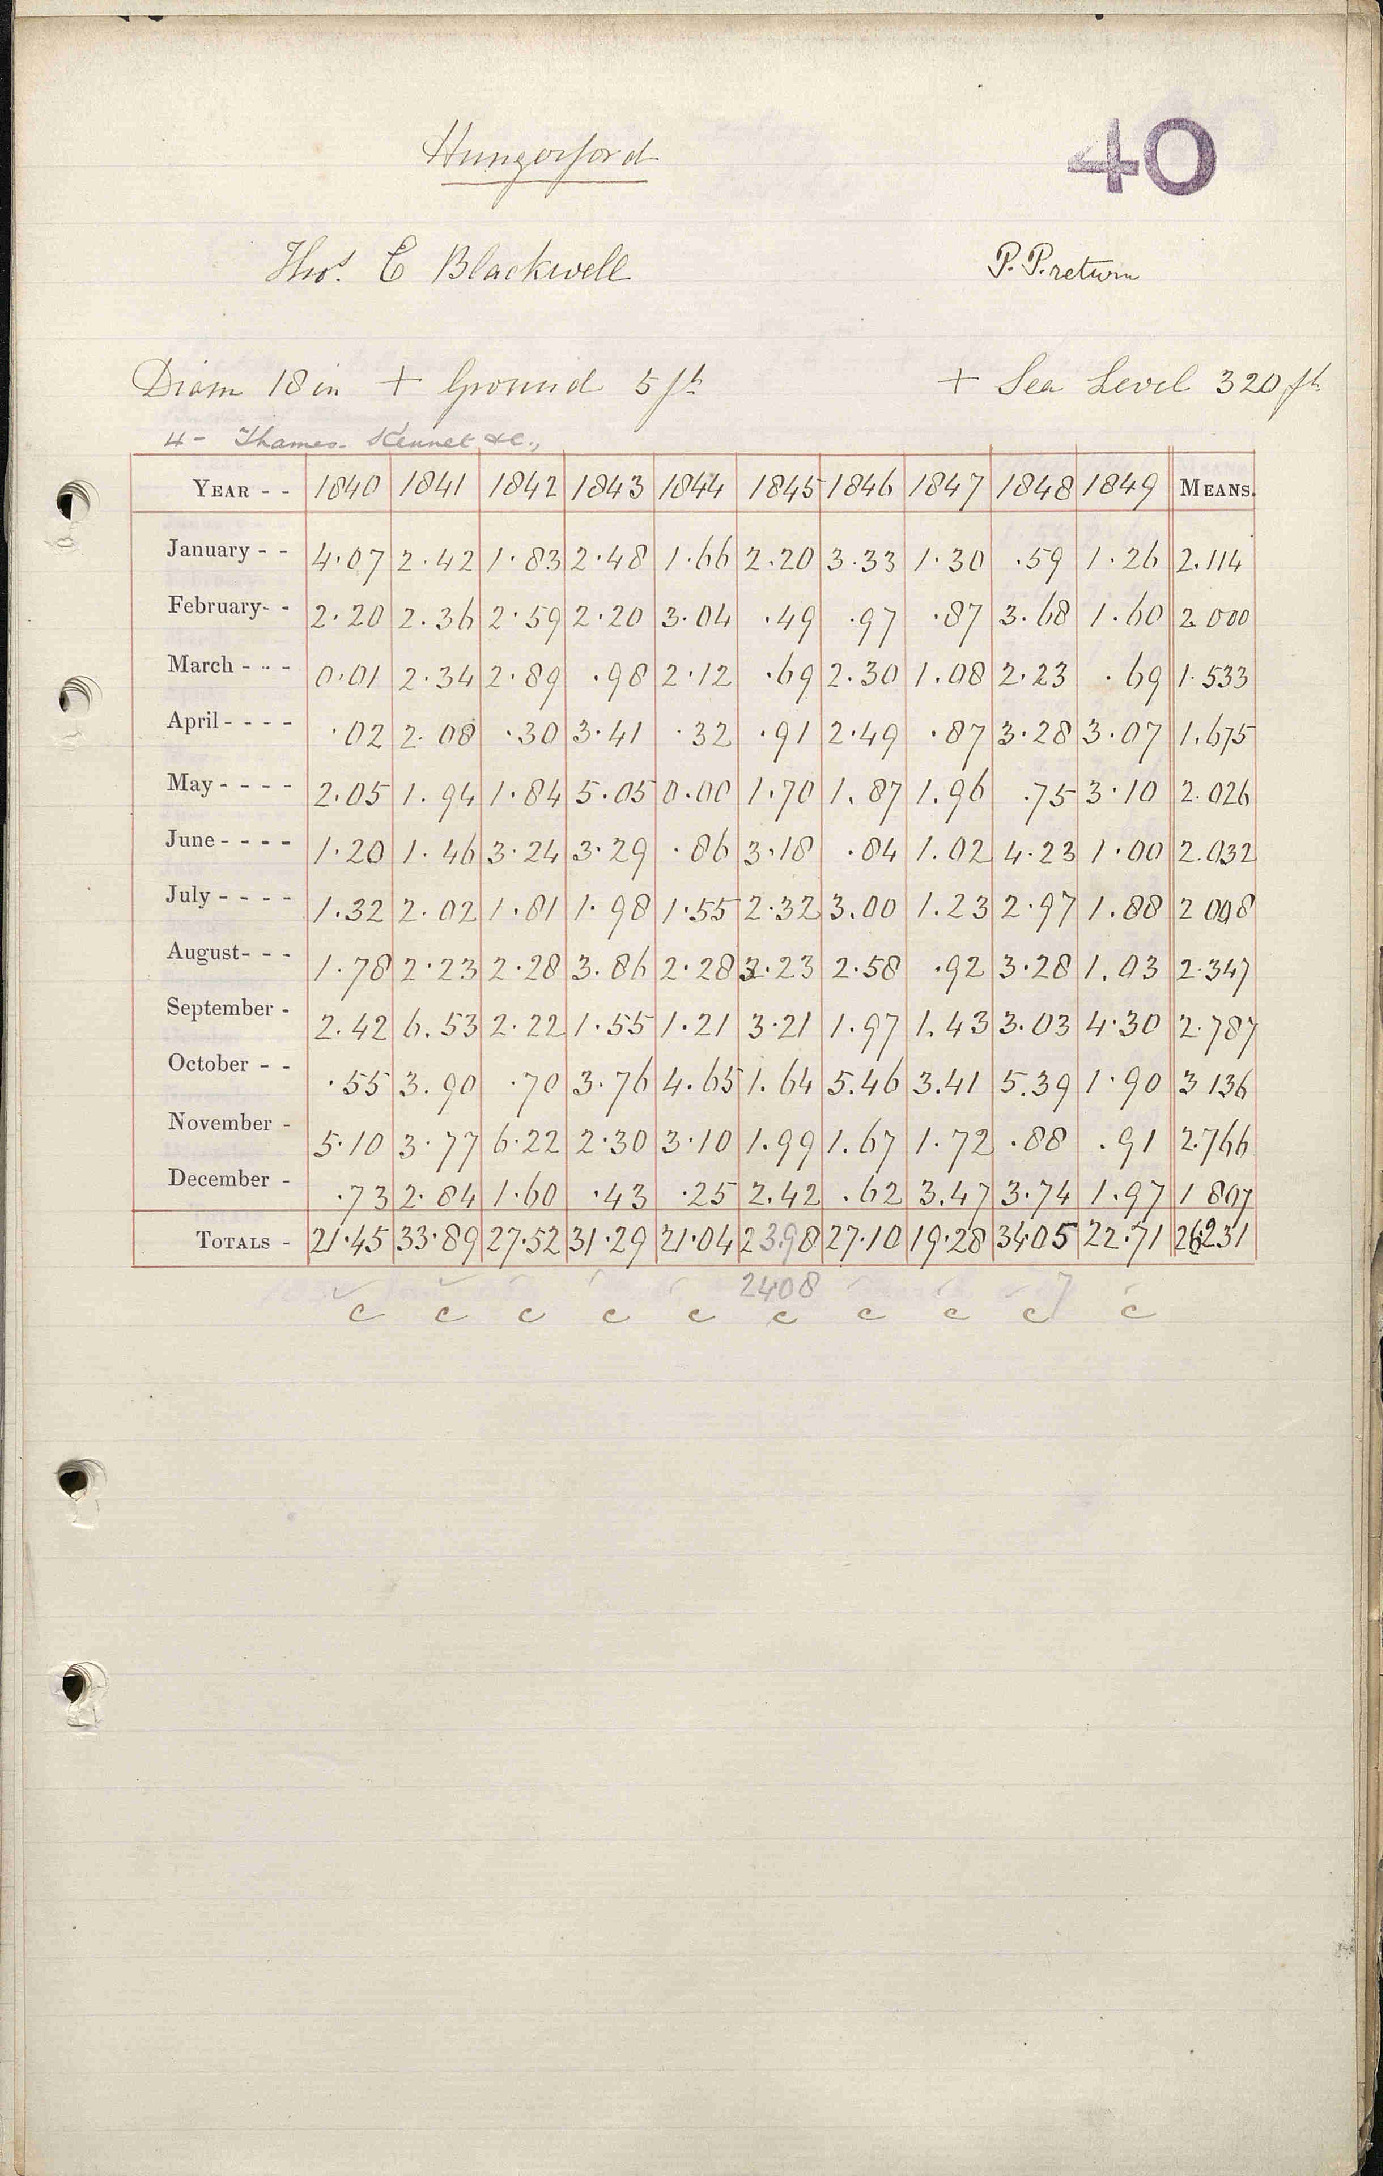 40
Hungerford
Thos. E Blackwell P.P. return
Diam 18 in + Ground 5 ft + Sea Level 320 ft
4- Thames Kennet &c.,
YEAR - - 1840 1841 1842 1843 1844 1845 1846 1847 1848 1849 MEANS.
January - - 4.07 2.42 1.83 2.48 1.66 2.20 3.33 1.30 .59 1.26 2.114
February- - 2.20 2.36 2.59 2.20 3.04 .49 .97 .87 3.68 1.60 2.000
March - - - 0.01 2.34 2.89 .98 2.12 .69 2.30 1.08 2.23 .69 1.533
April - - - - .02 2.08 .30 3.41 .32 .91 2.49 .87 3.28 3.07 1.675
May - - - - 2.05 1.94 1.84 5.05 0.00 1.70 1.87 1.96 .75 3.10 2.026
June - - - - 1.20 1.46 3.24 3.29 .86 3.18 .84 1.02 4.23 1.00 2.032
July - - - - 1.32 2.02 1.81 1.98 1.55 2.32 3.00 1.23 2.97 1.88 2 008
August- - - 1.78 2.23 2.28 3.86 2.28 3.23 2.58 .92 3.28 1.03 2.347
September - 2.42 6.53 2.22 1.55 1.21 3.21 1.97 1.43 3.03 4.30 2.787
October - - .55 3.90 .70 3.76 4.65 1.64 5.46 3.41 5.39 1.90 3 136
November - 5.10 3.77 6.22 2.30 3.10 1.99 1.67 1.72 .88 .91 2.766
December - .73 2.84 1.60 .43 .25 2.42 .62 3.47 3.74 1.97 1 807
TOTALS - 21.45 33.89 27.52 31.29 21.04 23.98 27.10 19.28 34.05 22.71 26.231
2408 7
c c c c c c c c c c